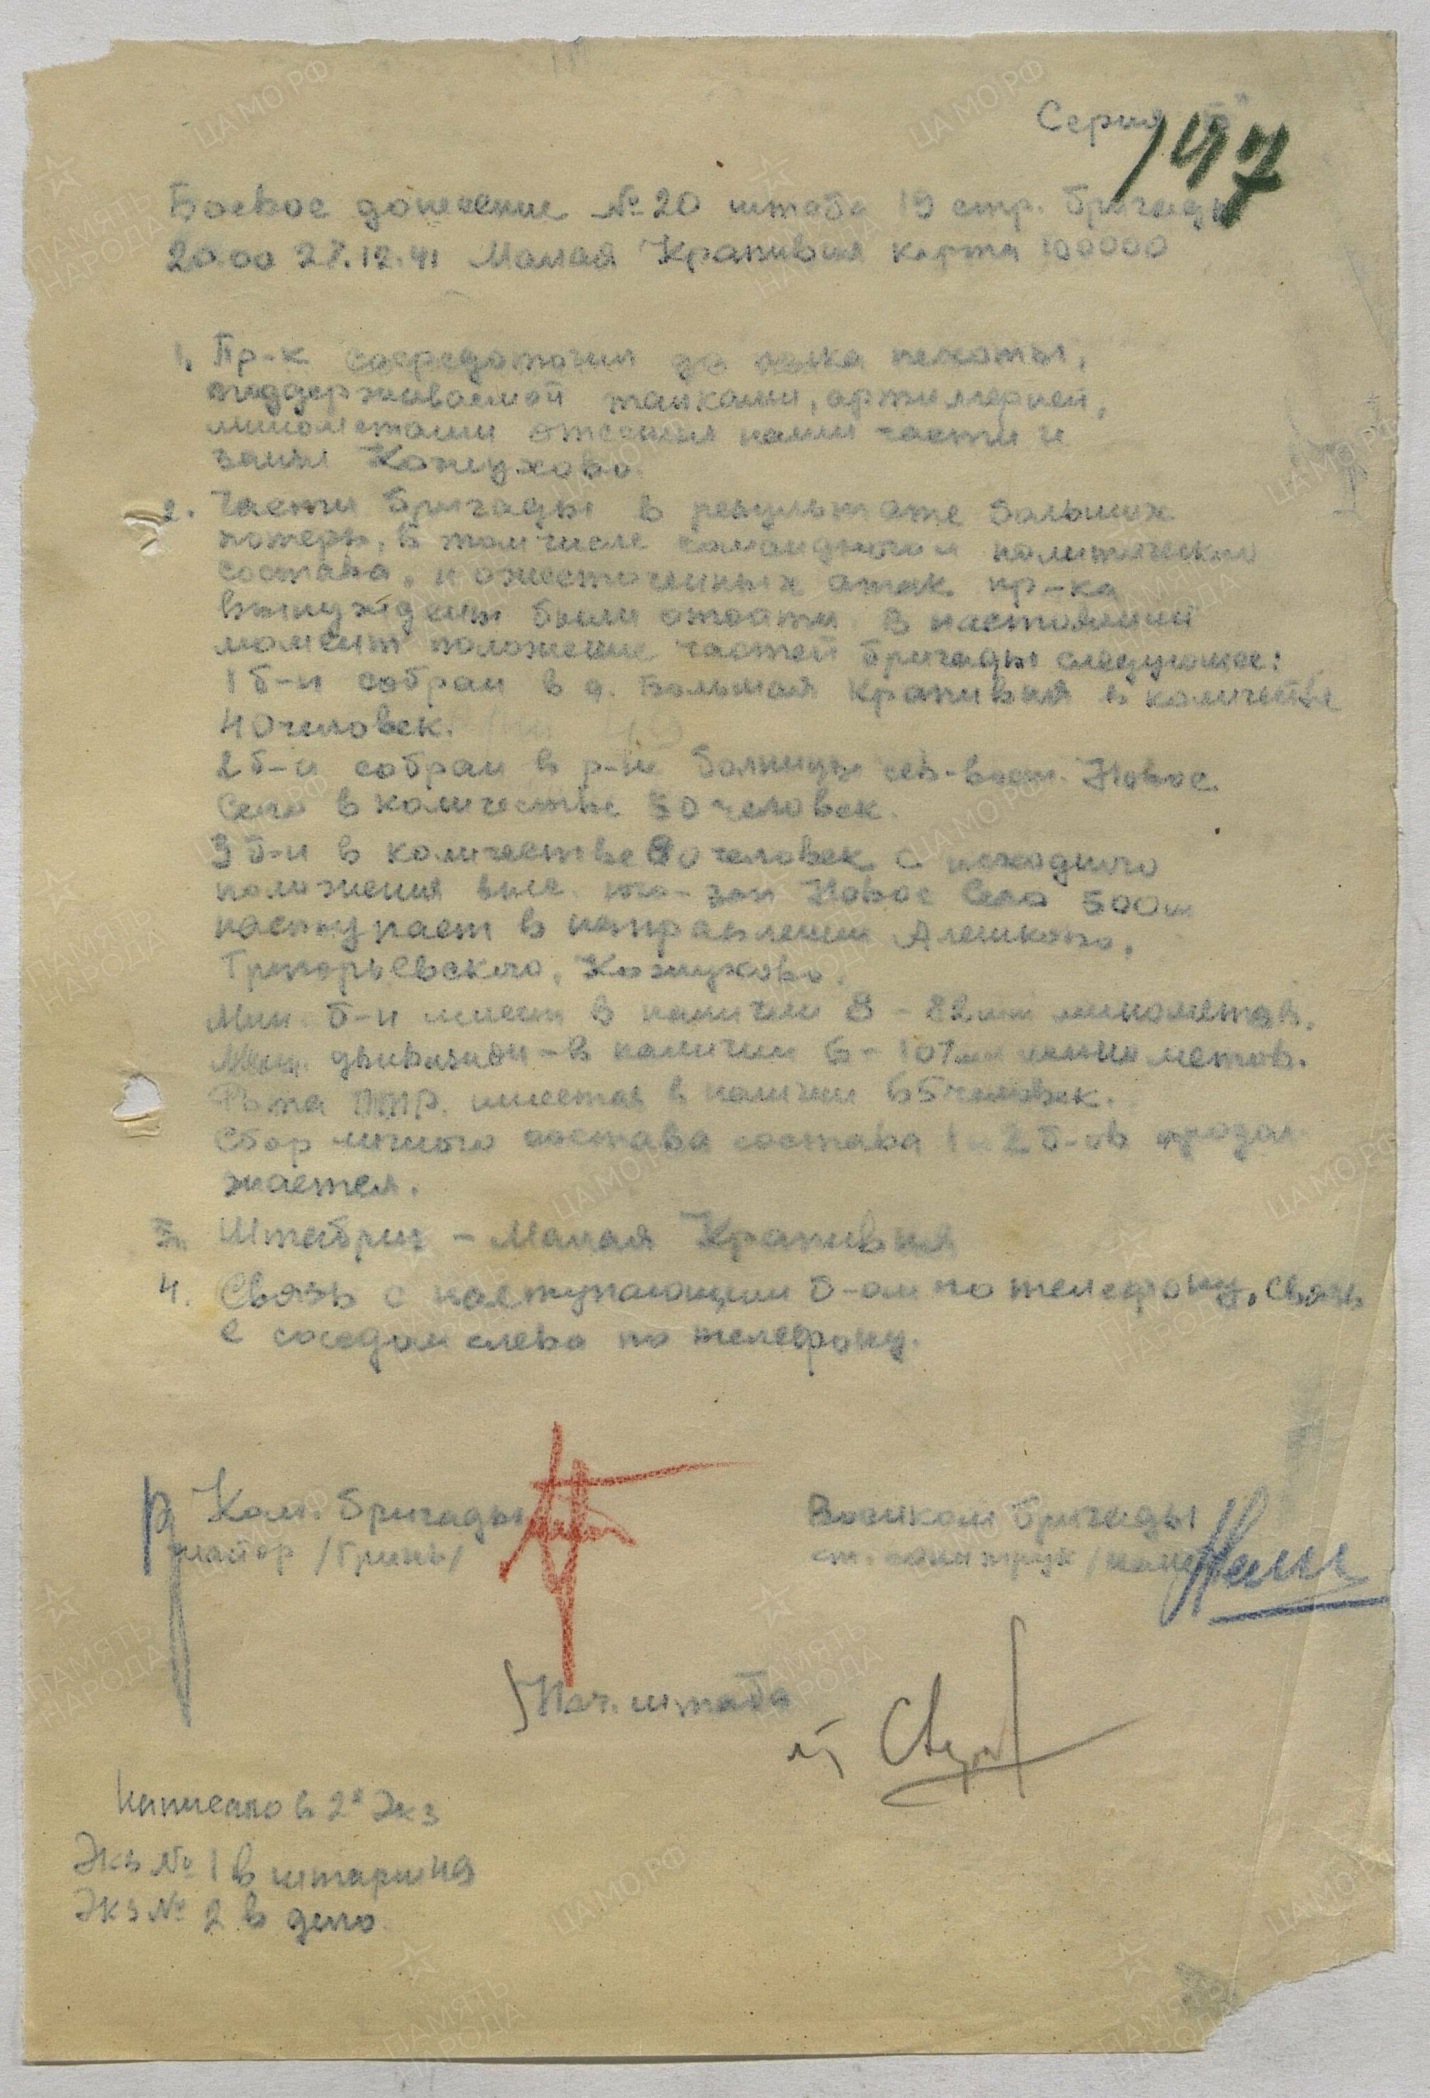 Серия "Б"
197
Боевое донесение № 20 штаба 19 стр. бригады
20.00 27.12.41 Малая Крапивня карта 100000
1. Пр-к сосредоточил до полка пехоты,
поддерживаемой танками, артиллерией,
минометами оттеснил наши части и
занял Кожухово.
2. Части бригады в результате больших
потерь, в том числе командного и политического
состава, и ожесточенных атак пр-ка
вынуждены были отойти. В настоящий
момент положение частей бригады следующее:
1 б-н собран в д. Большая Крапивня в количестве
40 человек.
2 б-н собран в р-не больницы сев-вост. Новое
Село в количестве 50 человек.
3 б-н в количестве 80 человек с исходного
положения выс. юго-зап Новое Село 500м
наступает в направлении Алешково,
Григорьевского, Кожухово.
Мин. б-н имеет в наличии 8 - 82мм минометов.
Мин. дивизион - в наличии 6 - 107мм минометов.
Рота ПТР. имеется в наличии 65 человек.
Сбор личного состава состава 1 и 2 б-ов продол-
жается.
3. Штабриг - Малая Крапивня
4. Связь с наступающим б-ом по телефону, связь
с соседом слева по телефону.
Ком. бригады
майор /Гринь/
Военком бригады
ст. политрук
Нач. штаба
Написано в 2х Экз
Экз № 1 в штарм 49
Экз № 2 в дело.
ЦАМО.РФ
ПАМЯТЬ НАРОДА